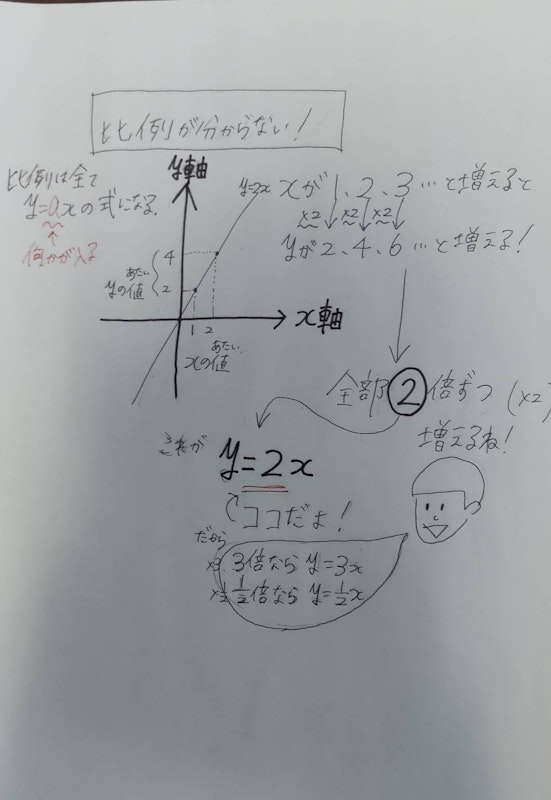 比例が分からない!
比例は全て
y=axの式になる。
何かが入る
y軸
y=2x
4
2
あたい
yの値
1 2
x軸
あたい
xの値
xが1、2、3…と増えると
×2 ×2 ×2
yが2、4、6…と増える!
全部2倍ずつ(×2)
増えるね!
これが
y=2x
ココだよ!
だから
×3 3倍なら y=3x
×1/2 1/2倍なら y=1/2x